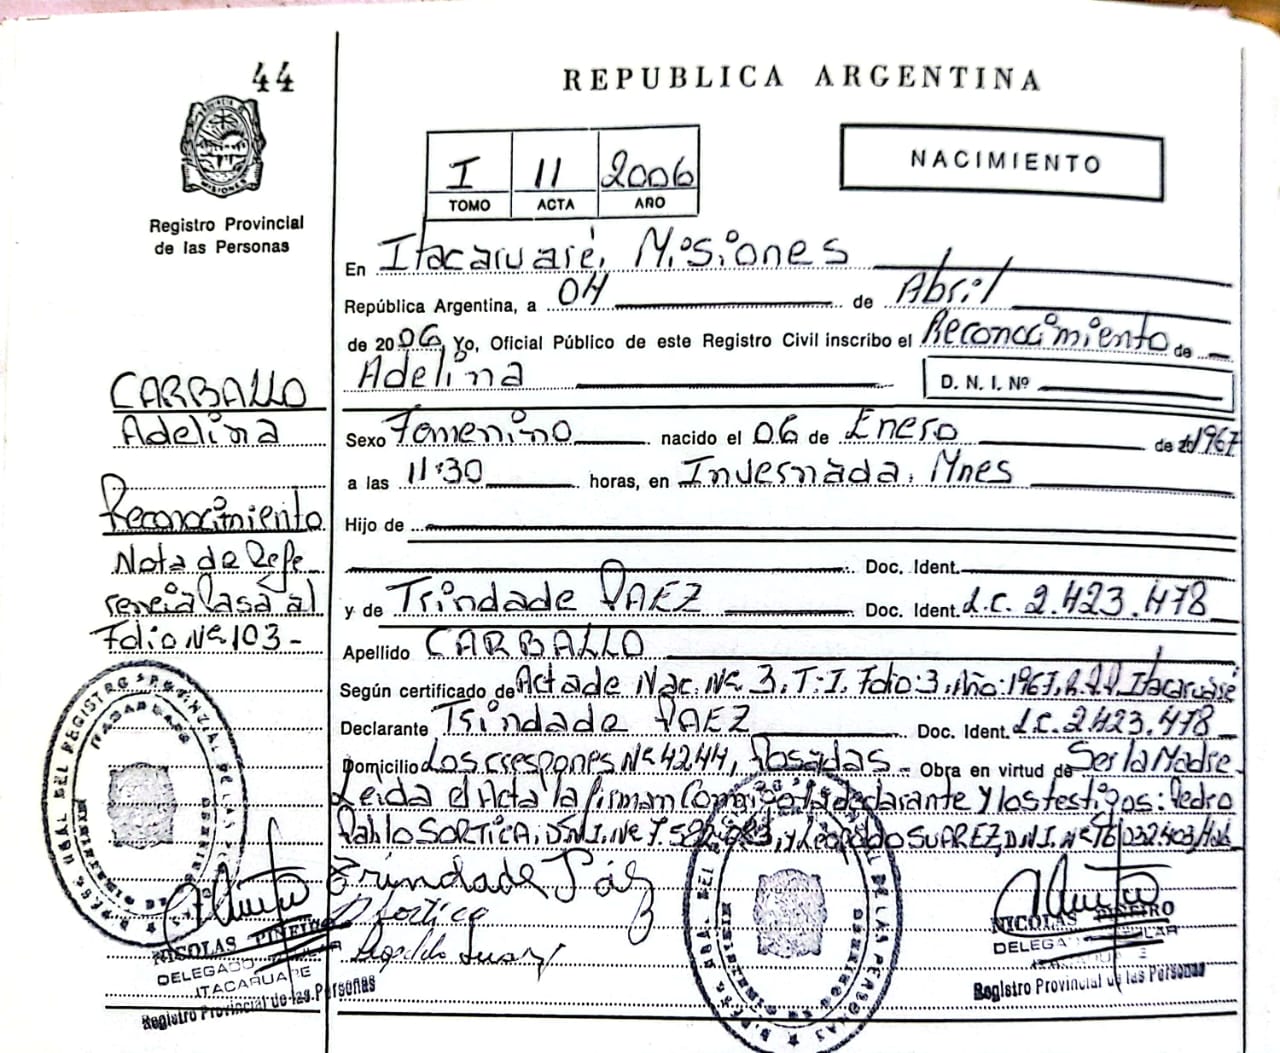 44
REPUBLICA ARGENTINA
NACIMIENTO
I 11 2006
TOMO ACTA AÑO
MISIONES
Registro Provincial
de las Personas
En Itacaruaré, Misiones
República Argentina, a 04 de Abril
de 2006 Yo, Oficial Público de este Registro Civil inscribo el Reconocimiento de
Adelina D. N. I. Nº
CARBALLO
Adelina
Reconocimiento
Nota de Refe
rencia Casa al
Folio Nº 103-
Sexo Femenino nacido el 06 de Enero de 1967
a las 11:30 horas, en Invernada, Mnes
Hijo de
Doc. Ident.
y de Trindade PAEZ Doc. Ident. L.C. 2.423.478
Apellido CARBALLO
Según certificado de Acta de Nac. Nº 3, T: I, Folio: 3, Año: 1967, R.P.P. Itacaruaré
Declarante Trindade PAEZ Doc. Ident. L.C. 2.423.478
Domicilio Los crespones Nº 4244, Posadas - Obra en virtud de Ser la Madre
Leida el Acta la firman Conmigo la declarante y los testigos: Pedro
Pablo SORTICA, D.N.I. Nº y Leopoldo SUAREZ, D.N.I. Nº
Trindade Páez
P Sortica
Leopoldo Suarez
NICOLAS PINEIRO
DELEGADO
ITACARUARE
Registro Provincial de las Personas
NICOLAS PINEIRO
Registro Provincial de las Personas